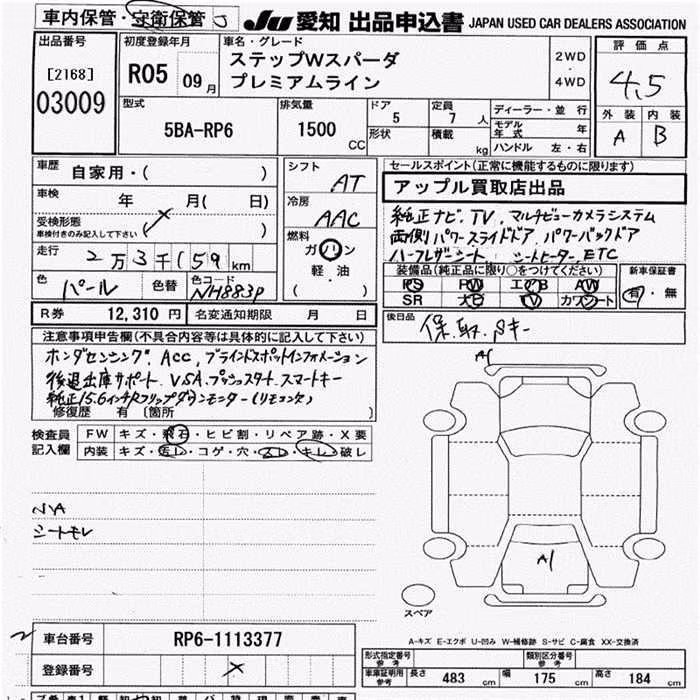 車内保管・守衛保管 J
JU 愛知 出品申込書 JAPAN USED CAR DEALERS ASSOCIATION
出品番号
[2168]
03009
初度登録年月
R05 09月
車名・グレード
ステップWスパーダ
プレミアムライン
2WD
・
4WD
評価点
4.5
外装 内装
A B
型式
5BA-RP6
排気量
1500 CC
ドア 5
形状
定員 7人
積載 kg
ディーラー・並行
モデル年式 年
ハンドル 左・右
車歴 自家用・( )
車検 年 月( 日)
受検形態
車検付きのみ記入して下さい ( )
走行 2万3千(59 km
色 パール 色替 色コードNo NH883P
シフト AT
冷房 AAC
燃料
ガソリン
軽・油
( )
セールスポイント(正常に機能するものに限ります)
アップル買取店出品
純正ナビ、TV、マルチビューカメラシステム
両側パワースライドドア、パワーバックドア
ハーフレザーシート シートヒーター、ETC
装備品(純正品に限り○をつけてください)
PS PW エアB AW
SR ナビ TV カワシート
新車保証書
有・無
R券 12,310円 名変通知期限 月 日
後日品
保、取、Sキー
注意事項申告欄(不具合内容等は具体的に記入して下さい)
ホンダセンシング、ACC、ブラインドスポットインフォメーション
後退出庫サポート、VSA、プッシュスタート、スマートキー
純正15.6インチRフリップダウンモニター(リモコン欠)
修復歴 有 〔箇所 〕
検査員
記入欄
FW キズ・飛石・ヒビ割・リペア跡・X要
内装 キズ・汚レ・コゲ・穴・スレ・キレ・破レ
A1
NA
シートモレ
A1
スペア
A-キズ E-エクボ U-凹み W-補修跡 S-サビ C-腐食 XX-交換済
車台番号 RP6-1113377
登録番号
形式指定番号 参考
類別区分番号 参考
車庫証明用 参考 長さ 483 cm 幅 175 cm 高さ 184 cm